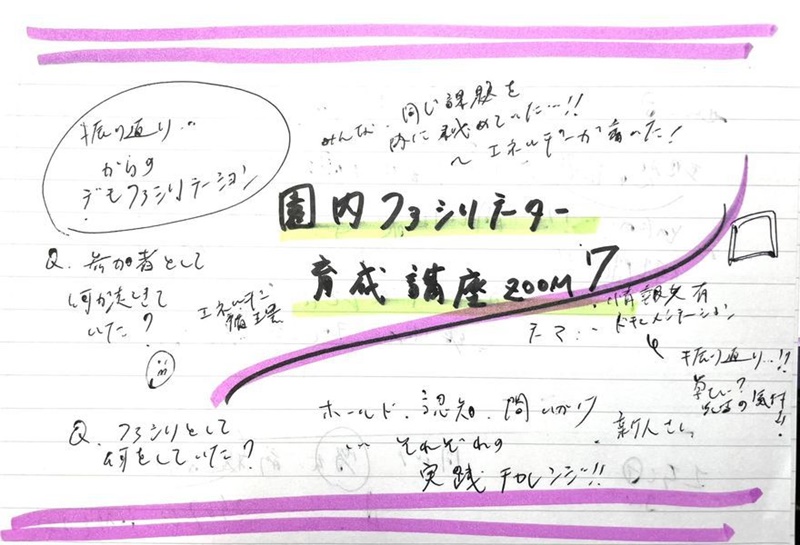 振り返り…
からの
デモファシリテーション
みんな、同じ課題を
内に秘めていた…!!
〜エネルギーが蓄った!
園内ファシリテーター
育成講座ZOOM7
Q. 参加者として
何が起きて
いた?
エネルギー
循環
テマ:
情報共有
ドキュメンテーション
振り返り…!?
楽しい?
の気付
新人さん
Q. ファシリとして
何をしていた?
ホールド、認知、問いかけ
それぞれの
実践チャレンジ!!